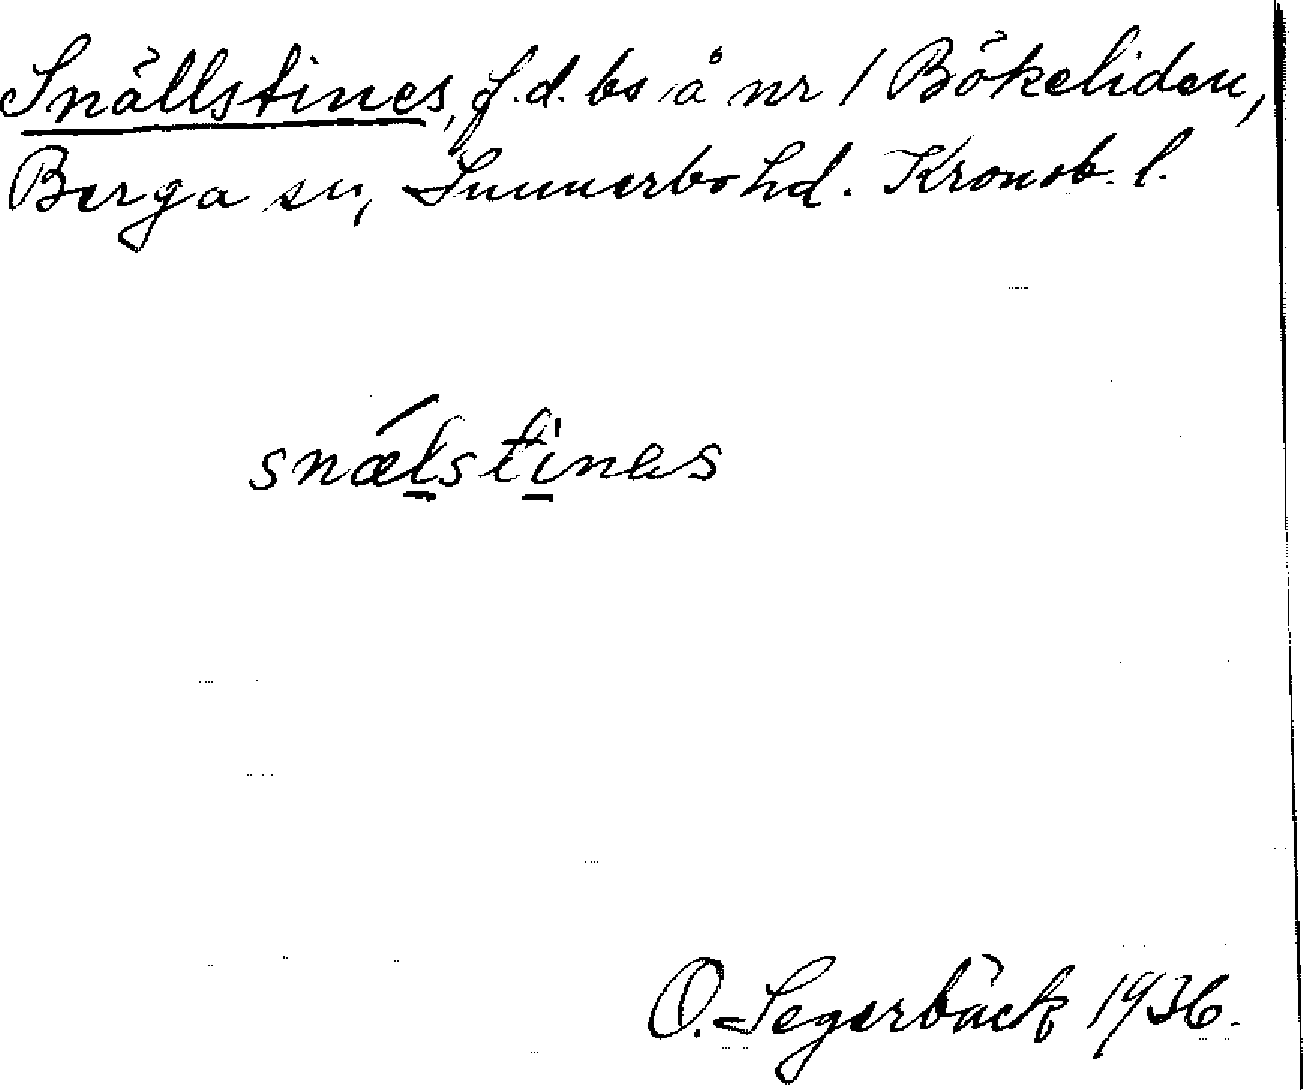 Snällstines, f.d. bs å nr 1 Bökeliden,
Berga sn, Sunnerbo hd. Kronob. l.
snælstinəs
O. Segerbäck 1936.